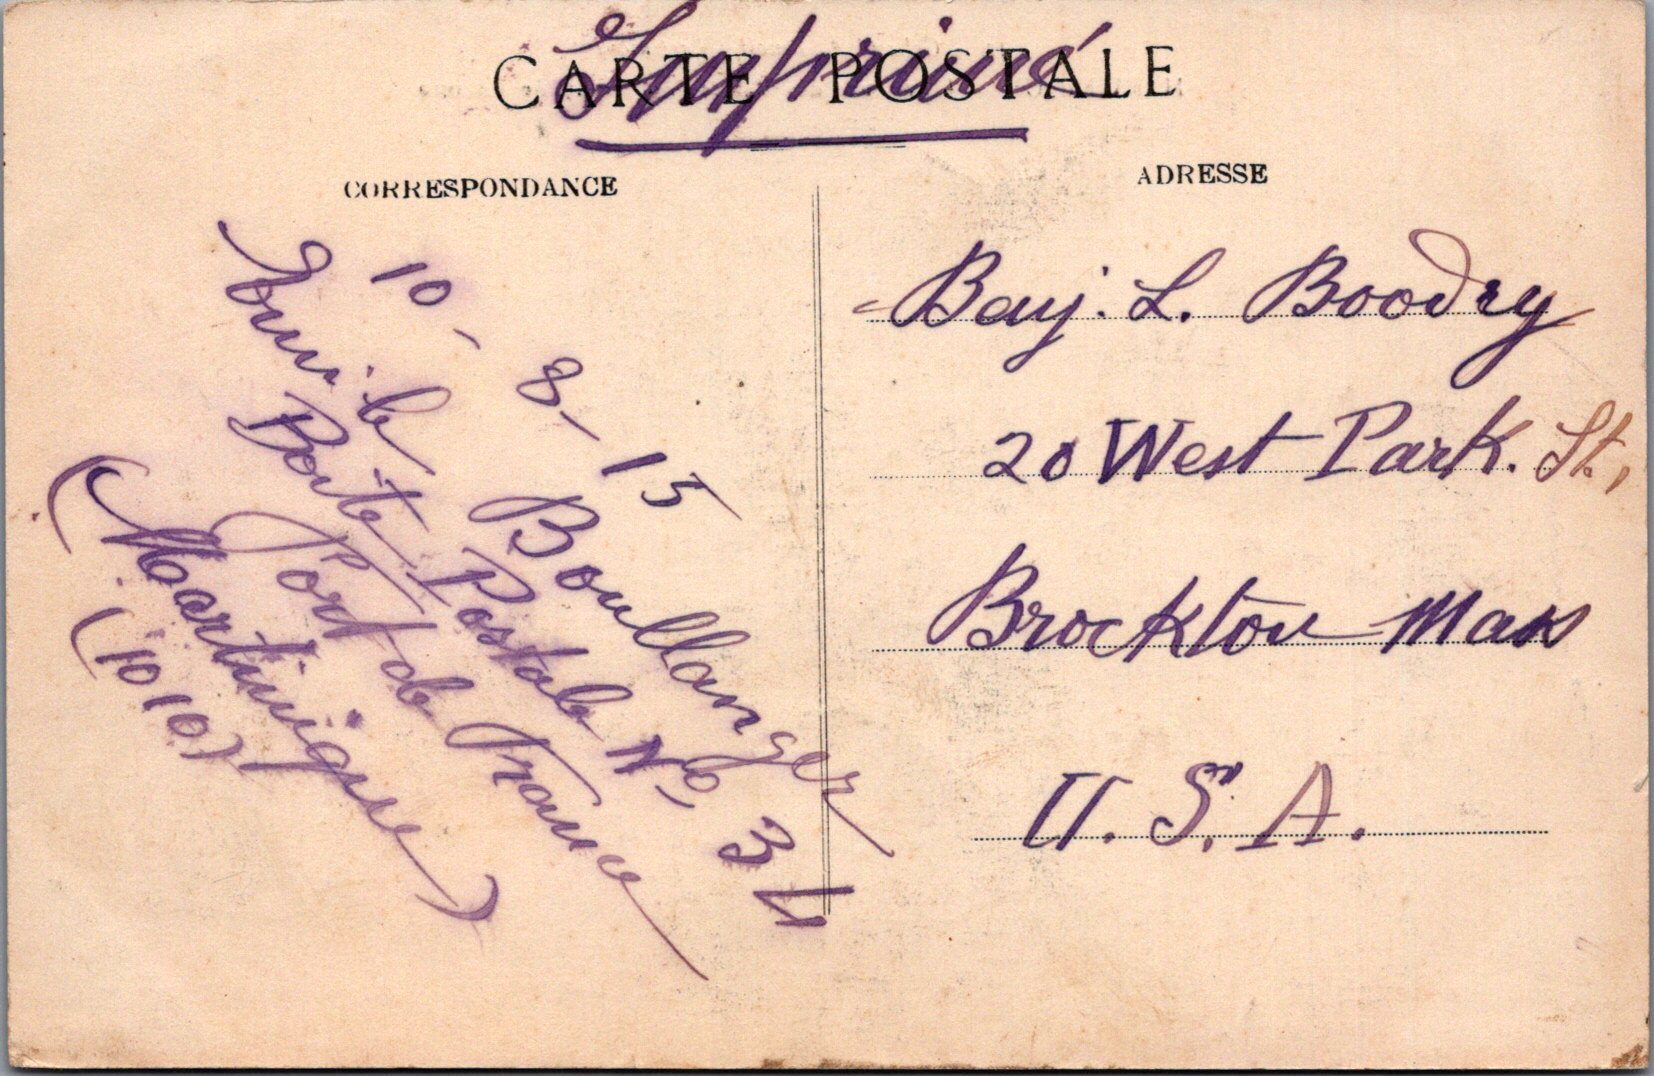 Imprimé
CARTE POSTALE
CORRESPONDANCE
ADRESSE
10 - 8 - 15
Boullanger
Boite Postale No. 34
Fort de France
(Martinique)
(1010)
Benj. L. Boodry
20 West Park. St.,
Brockton Mass
U. S. A.